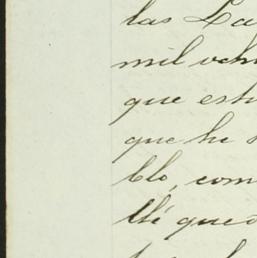 las La
mil och
que est
que he
blo, com
llé qued